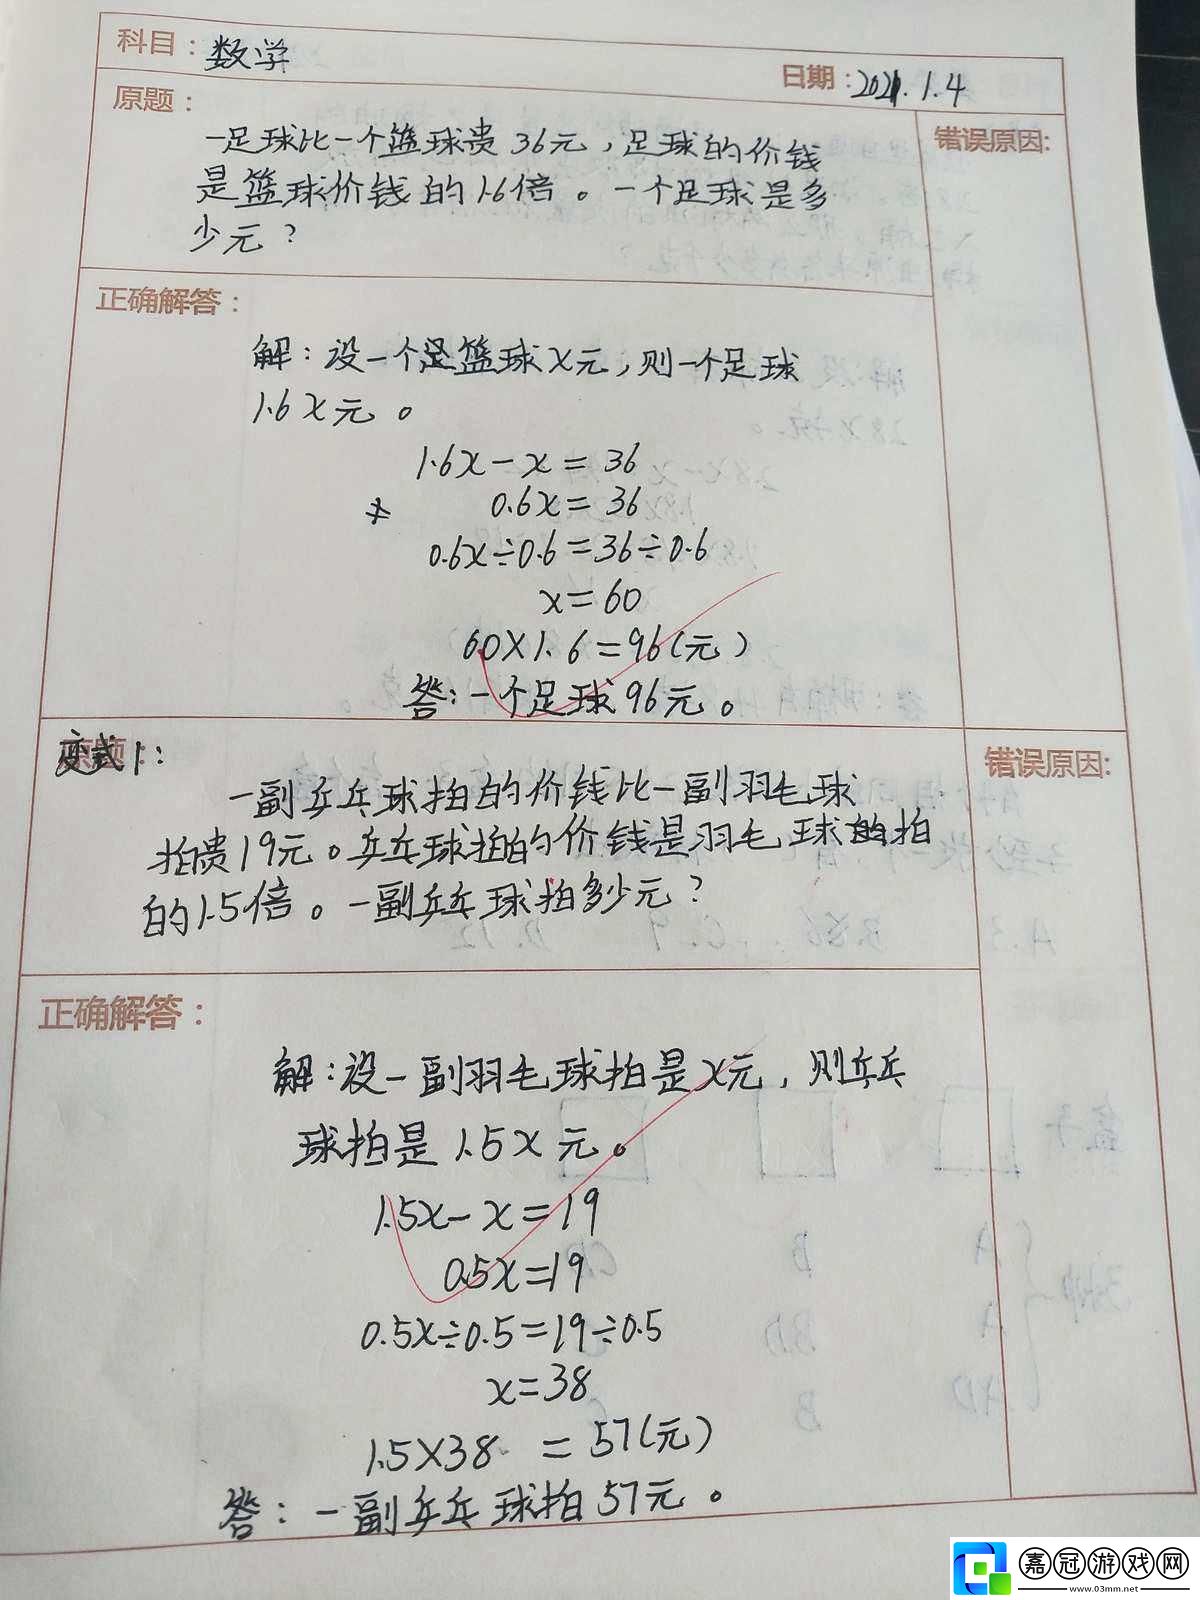 科目：数学
日期：2021.1.4
原题：
错误原因:
一足球比一个篮球贵36元，足球的价钱
是篮球价钱的1.6倍。一个足球是多
少元？
正确解答：
解：设一个篮球x元，则一个足球
1.6x元。
1.6x－x＝36
0.6x＝36
0.6x÷0.6＝36÷0.6
x＝60
60×1.6＝96(元)
答：一个足球96元。
变式1：
错误原因:
一副乒乓球拍的价钱比一副羽毛球
拍贵19元。乒乓球拍的价钱是羽毛球拍
的1.5倍。一副乒乓球拍多少元？
正确解答：
解：设一副羽毛球拍是x元，则乒乓
球拍是1.5x元。
1.5x－x＝19
0.5x＝19
0.5x÷0.5＝19÷0.5
x＝38
1.5×38＝57(元)
答：一副乒乓球拍57元。
嘉冠游戏网
www.03mm.net